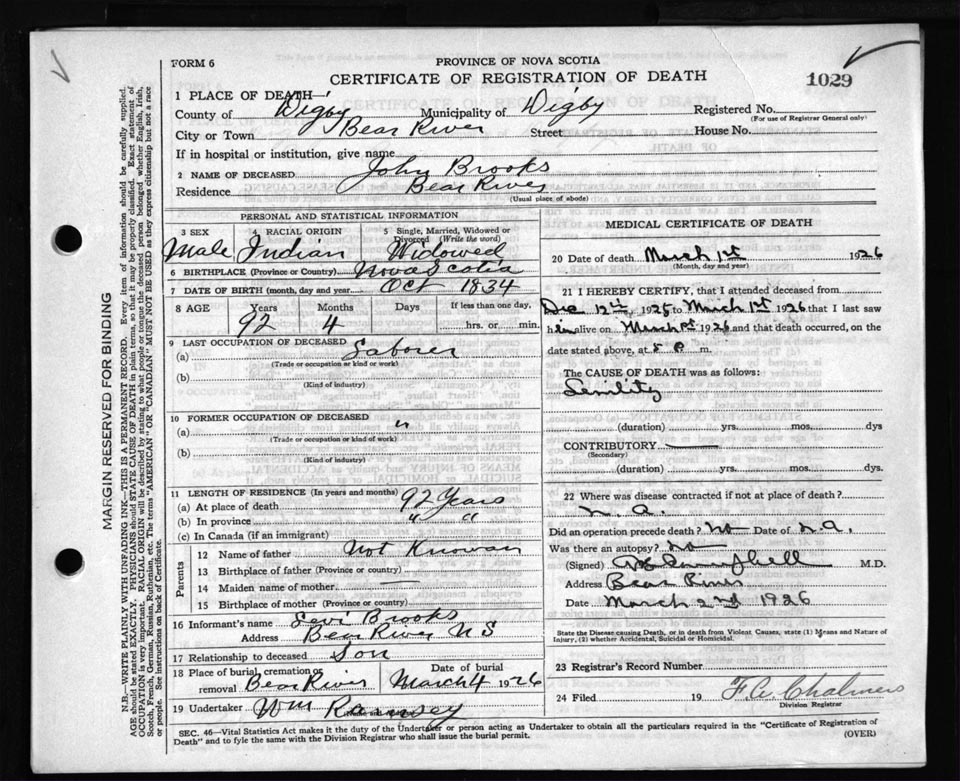 FORM 6
PROVINCE OF NOVA SCOTIA
CERTIFICATE OF REGISTRATION OF DEATH
1029
1 PLACE OF DEATH—
County of Digby Municipality of Digby Registered No.
(For use of Registrar General only)
City or Town Bear River Street House No.
If in hospital or institution, give name
2 NAME OF DECEASED John Brooks
Residence Bear River
(Usual place of abode)
PERSONAL AND STATISTICAL INFORMATION
3 SEX 4 RACIAL ORIGIN 5 Single, Married, Widowed or Divorced (Write the word)
Male Indian Widowed
6 BIRTHPLACE (Province or Country) Nova Scotia
7 DATE OF BIRTH (month, day and year) Oct 1834
8 AGE Years Months Days If less than one day,
92 4 hrs. or min.
9 LAST OCCUPATION OF DECEASED
(a) Laborer
(Trade or occupation or kind or work)
(b)
(Kind of industry)
10 FORMER OCCUPATION OF DECEASED
(a) "
(Trade or occupation or kind of work)
(b)
(Kind of industry)
11 LENGTH OF RESIDENCE (In years and months)
(a) At place of death 92 Years
(b) In province " "
(c) In Canada (if an immigrant)
Parents
12 Name of father Not Knowan
13 Birthplace of father (Province or country)
14 Maiden name of mother —
15 Birthplace of mother (Province or country)
16 Informant's name Levi Brooks
Address Bear River N S
17 Relationship to deceased Son
18 Place of burial, cremation or removal Bear River Date of burial March 4 1926
19 Undertaker Wm Ramsey
MEDICAL CERTIFICATE OF DEATH
20 Date of death March 1st 1926
(Month, day and year)
21 I HEREBY CERTIFY, that I attended deceased from
Dec 12th 1925 to March 1st 1926 that I last saw
him alive on March 1st 1926 and that death occurred, on the
date stated above, at 5 P m.
The CAUSE OF DEATH was as follows:
Senility
(duration) yrs. mos. dys
CONTRIBUTORY —
(Secondary)
(duration) yrs. mos. dys.
22 Where was disease contracted if not at place of death?
N. A.
Did an operation precede death? No Date of N.A.
Was there an autopsy? No
(Signed) Campbell M.D.
Address Bear River
Date March 2nd 1926
State the Disease causing Death, or in death from Violent Causes, state (1) Means and Nature of
Injury, (2) whether Accidental, Suicidal or Homicidal.
23 Registrar's Record Number
24 Filed 19 Chalmers
Division Registrar
SEC. 46—Vital Statistics Act makes it the duty of the Undertaker or person acting as Undertaker to obtain all the particulars required in the "Certificate of Registration of
Death" and to fyle the same with the Division Registrar who shall issue the burial permit. (OVER)
MARGIN RESERVED FOR BINDING
N.B.—WRITE PLAINLY, WITH UNFADING INK—THIS IS A PERMANENT RECORD. Every item of information should be carefully supplied.
AGE should be stated EXACTLY. PHYSICIANS should STATE CAUSE OF DEATH in plain terms, so that it may be properly classified. Exact statement of
OCCUPATION is very important. RACIAL ORIGIN will be described by stating to what people or tongue the deceased person belonged whether English, Irish,
Scotch, French, German, Russian, Ruthenian, etc. The terms "AMERICAN" OR "CANADIAN" MUST NOT BE USED as they express citizenship but not a race
or people. See instructions on back of Certificate.